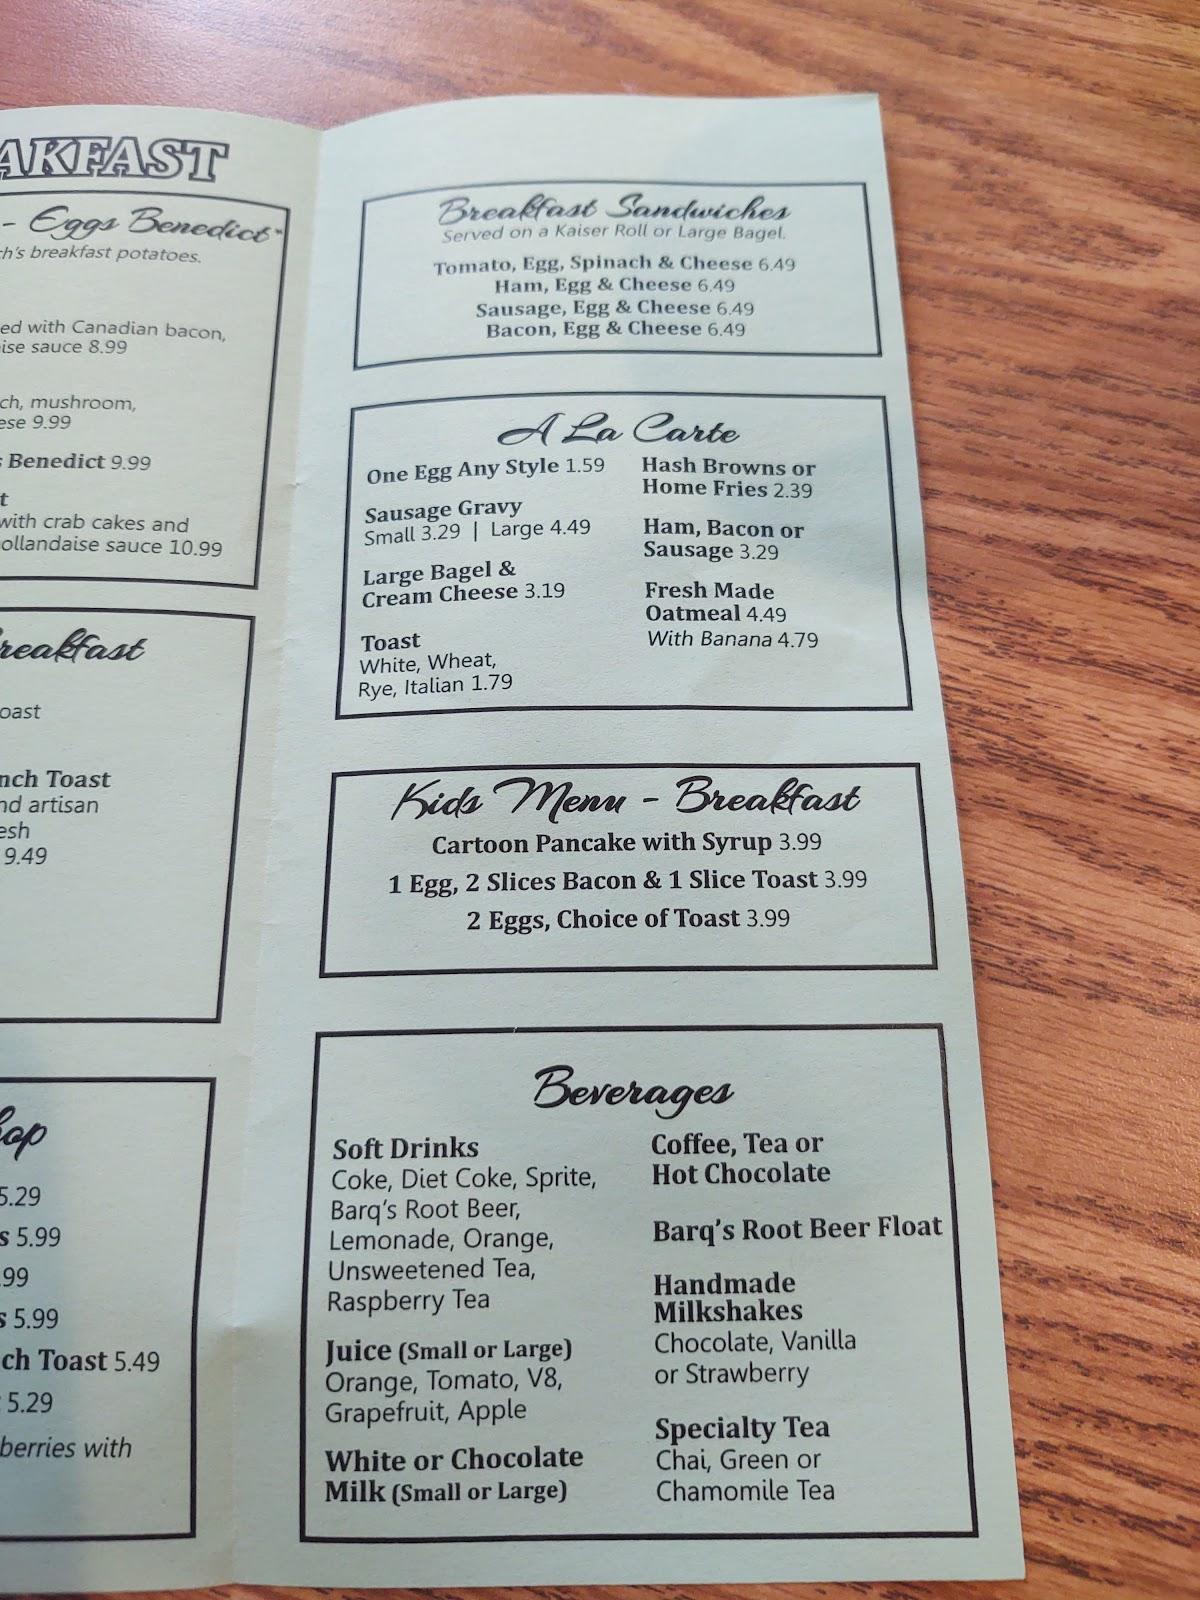 AKFAST
- Eggs Benedict*
ch's breakfast potatoes.
ed with Canadian bacon,
ise sauce 8.99
ch, mushroom,
ese 9.99
s Benedict 9.99
t
with crab cakes and
ollandaise sauce 10.99
reakfast
oast
nch Toast
nd artisan
esh
9.49
op
5.29
s 5.99
.99
s 5.99
ch Toast 5.49
5.29
berries with
Breakfast Sandwiches
Served on a Kaiser Roll or Large Bagel.
Tomato, Egg, Spinach & Cheese 6.49
Ham, Egg & Cheese 6.49
Sausage, Egg & Cheese 6.49
Bacon, Egg & Cheese 6.49
A La Carte
One Egg Any Style 1.59
Sausage Gravy
Small 3.29 | Large 4.49
Large Bagel &
Cream Cheese 3.19
Toast
White, Wheat,
Rye, Italian 1.79
Hash Browns or
Home Fries 2.39
Ham, Bacon or
Sausage 3.29
Fresh Made
Oatmeal 4.49
With Banana 4.79
Kids Menu - Breakfast
Cartoon Pancake with Syrup 3.99
1 Egg, 2 Slices Bacon & 1 Slice Toast 3.99
2 Eggs, Choice of Toast 3.99
Beverages
Soft Drinks
Coke, Diet Coke, Sprite,
Barq's Root Beer,
Lemonade, Orange,
Unsweetened Tea,
Raspberry Tea
Juice (Small or Large)
Orange, Tomato, V8,
Grapefruit, Apple
White or Chocolate
Milk (Small or Large)
Coffee, Tea or
Hot Chocolate
Barq's Root Beer Float
Handmade
Milkshakes
Chocolate, Vanilla
or Strawberry
Specialty Tea
Chai, Green or
Chamomile Tea